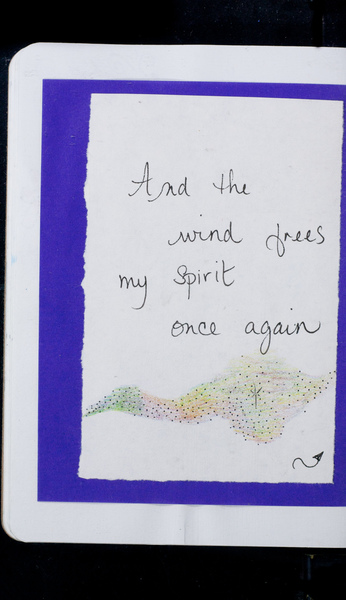 And the
wind frees
my spirit
once again